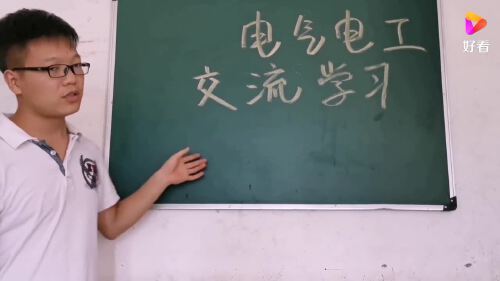 好看
电气电工
交流学习